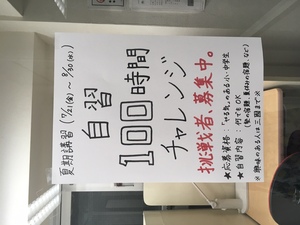 夏期講習(7/21(金)~8/30(水))
自習
100時間
チャレンジ
挑戦者募集中。
★応募資格:「やる気」のある小・中学生
★自習内容:何でもOK
(塾の宿題、夏休みの宿題、など)
※興味のある人は三國まで※